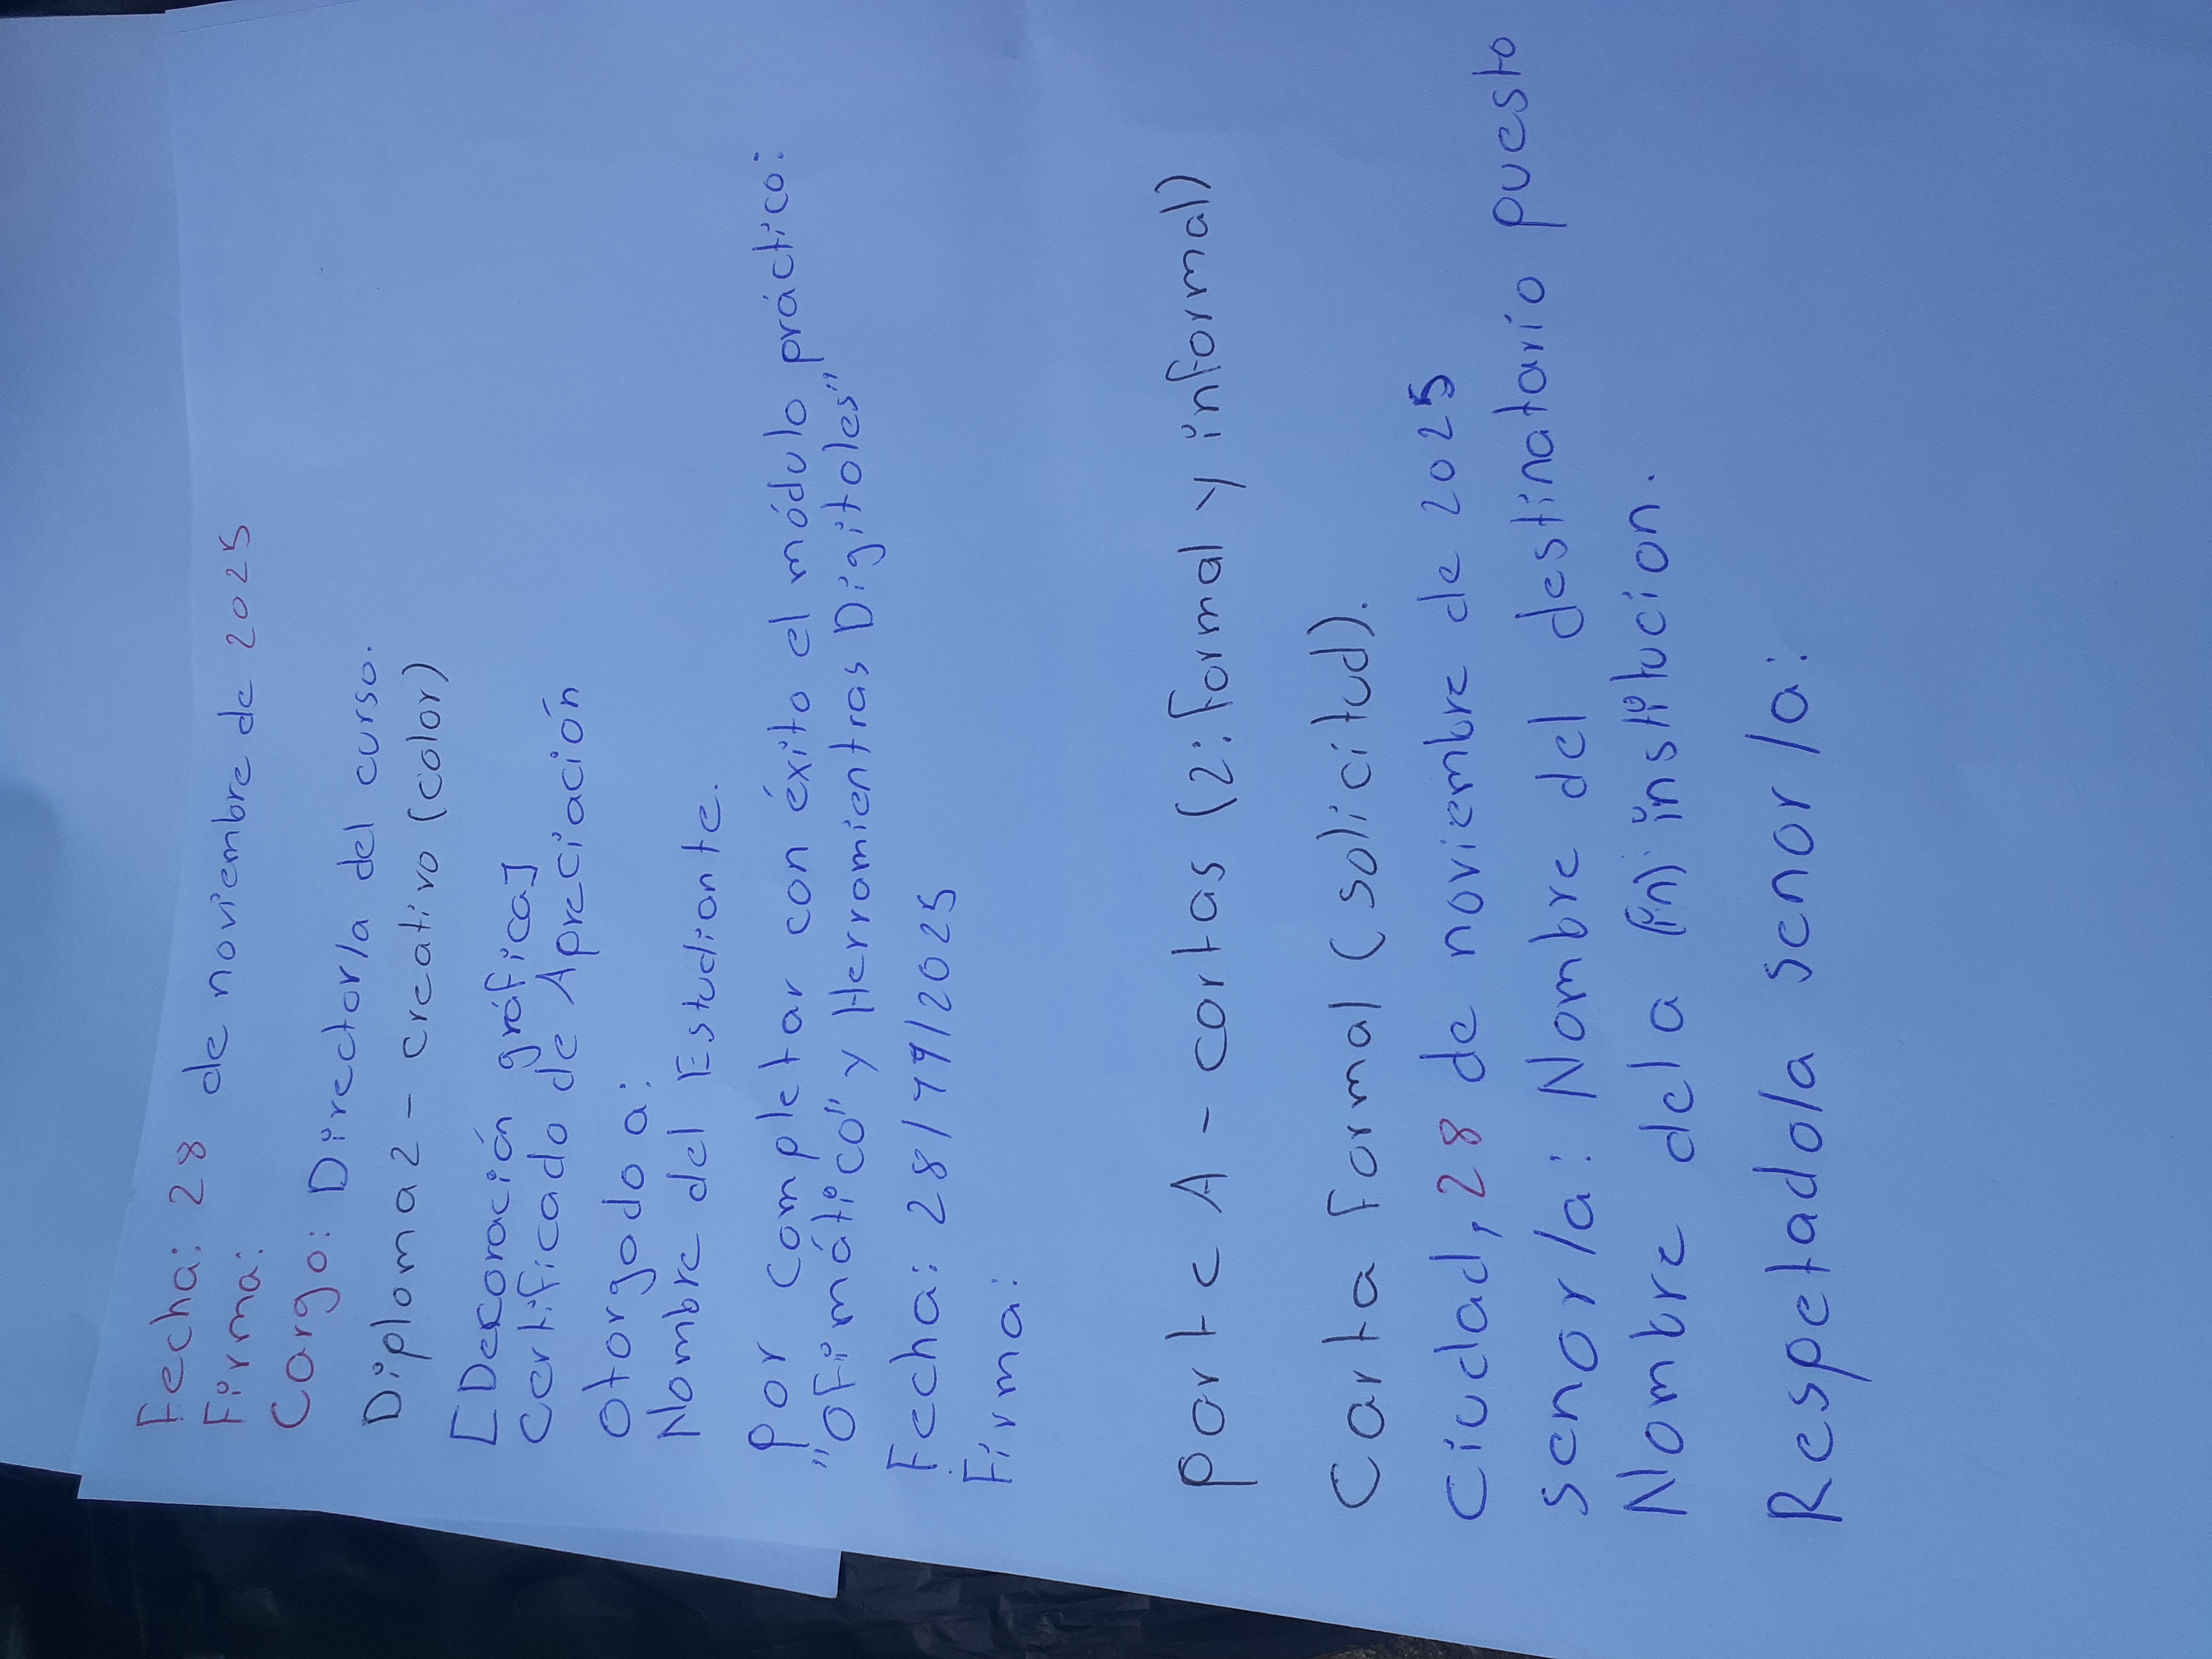 Fecha: 28 de noviembre de 2025
Firma:
Cargo: Director/a del curso.
Diploma 2 - creativo (color)
[Decoración gráfica]
Certificado de Apreciación
Otorgado a:
Nombre del Estudiante.
por completar con éxito el módulo práctico:
"Ofimático" y Herramientras Digitoles"
Fecha: 28/11/2025
Firma:
parte A - cortas (2: Formal y informal)
Carta Formal (solicitud).
Ciudad, 28 de noviembre de 2025
senor/a: Nombre del destinatario puesto
Nombre dela institucion.
Respetado/a senor/a: